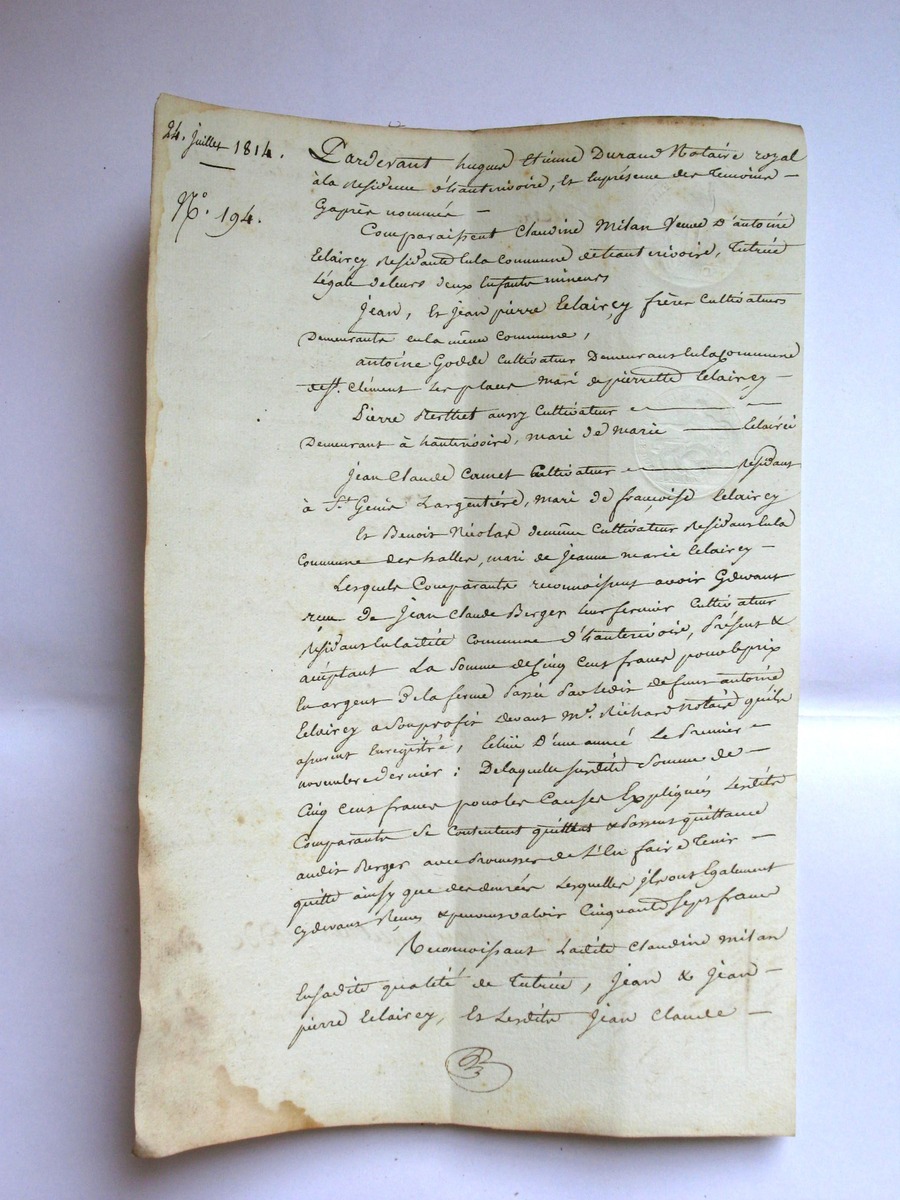 24. juillet 1814.
N.º 194.
Pardevant hugues Etienne Durand Notaire royal
à la Residence d'hauterivoire, et Enprésence des temoins —
Cyaprès nommés —
Comparaissent Claudine Milan Veuve D'antoine
Eclaircy Residante Enla Commune de hauterivoire, Tutrice
Légale deleurs deux Enfants mineurs
Jean, et Jean pierre Eclairçy frères Cultivateurs
Demeurants enla même Commune,
antoine Goddé Cultivateur Demeurant Enla Commune
de St. Clément Les places mari de pierrette Eclaircy —
Pierre Berthet aussy Cultivateur
Demeurant à hauterivoire, mari de Marie — Eclairci
Jean Claude Cornet Cultivateur — Residant
à St. Genis L'argentière, mari de françoise Eclaircy
Et Benoit Nicolas demême Cultivateur Residant Enla
Commune des halles, mari de Jeanne Marie Eclaircy —
Lesquels Comparants reconnaissent avoir Cydevant
reçu de Jean Claude Berger leur fermier Cultivateur
Résidant Enladite Commune d'hauterivoire, Présent &
acéptant La Somme de Cinq Cent francs pour le prix
En argent de la ferme Passée Par ledit defunt antoine
Eclaircy a Son profit devant Me. Richard Notaire qu'ils
assurent Enregistré, Echüe D'une année Le Premier —
novembre dernier : Delaquelle susdite Somme de —
Cinq Cent francs pour les Causes Expliquées Lesdits
Comparants Se Contentent quittent & Passent quittance
audit Berger avec Promesses de L'En faire Tenir —
quitte ainsy que des denrées Lesquelles ils ont Egalement
cydevant Reçues & pouvant valoir Cinquante Sept francs
Reconnoissant Ladite Claudine Milan
En sadite qualité de Tutrice, Jean & Jean —
pierre Eclaircy, Et Lesdits Jean Claude —